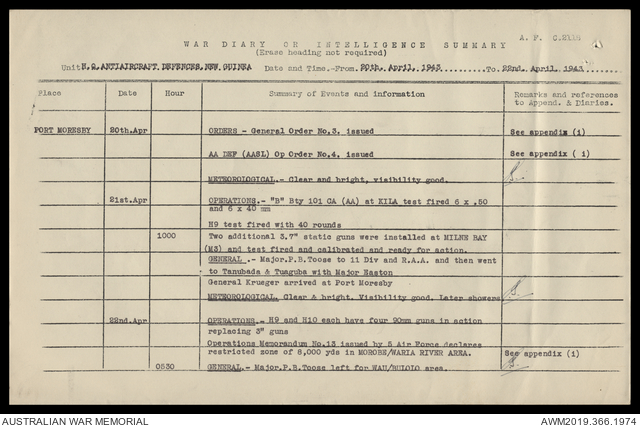 A.F. C.2118
WAR DIARY OR INTELLIGENCE SUMMARY
(Erase heading not required)
Unit H.Q. ANTIAIRCRAFT DEFENCES, NEW GUINEA Date and Time.-From. 20th. April, 1943 .......... To 22nd. April, 1943 ........
Place Date Hour Summary of Events and information Remarks and references
to Append. & Diaries.
PORT MORESBY 20th.Apr ORDERS - General Order No.3. issued See appendix (i)
AA DEF (AASL) Op Order No.4. issued See appendix ( i)
METEOROLOGICAL.- Clear and bright, visibility good.
21st.Apr OPERATIONS.- "B" Bty 101 CA (AA) at KILA test fired 6 x .50
and 6 x 40 mm
H9 test fired with 40 rounds
1000 Two additional 3.7" static guns were installed at MILNE BAY
(M3) and test fired and calibrated and ready for action.
GENERAL .- Major.P.B.Toose to 11 Div and R.A.A. and then went
to Tanubada & Tuaguba with Major Easton
General Krueger arrived at Port Moresby
METEOROLOGICAL. Clear & bright. Visibility good. Later showers
22nd.Apr OPERATIONS.- H9 and H10 each have four 90mm guns in action
replacing 3" guns
Operations Memorandum No.13 issued by 5 Air Force declares
restricted zone of 8,000 yds in MOROBE/WARIA RIVER AREA. See appendix (i)
0530 GENERAL.- Major.P.B.Toose left for WAU/BULOLO area.
AUSTRALIAN WAR MEMORIAL AWM2019.366.1974